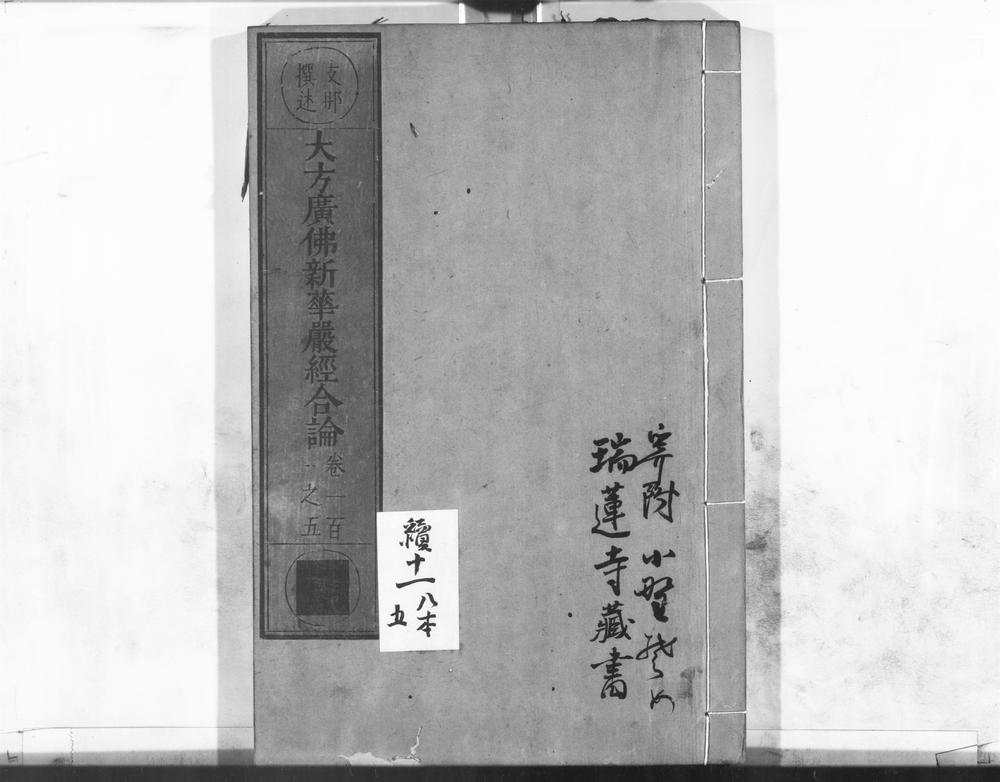 寄附 小野
瑞蓮寺藏書
續十一
八本
五
支那
撰述
大方廣佛新華嚴經合論
卷一百
之五